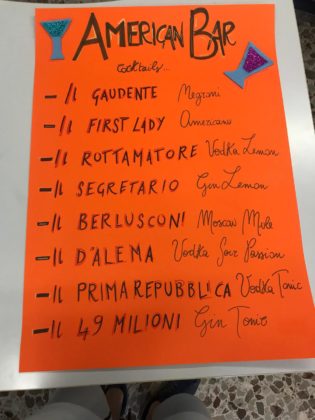 AMERICAN BAR
cocktails...
- Il GAUDENTE Negroni
- Il FIRST LADY Americano
- Il ROTTAMATORE Vodka Lemon
- Il SEGRETARIO Gin Lemon
- Il BERLUSCONI Moscow Mule
- Il D'ALEMA Vodka Sour Passion
- Il PRIMA REPUBBLICA Vodka Tonic
- Il 49 MILIONI Gin Tonic